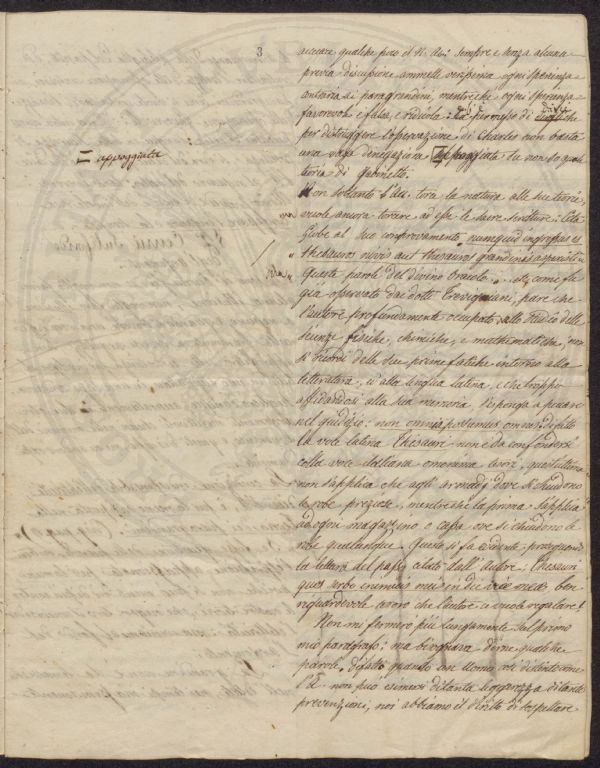 3
accecare qualche poco il N. Au: sempre e senza alcuna
previa discussione ammette veridicia ogni sperienza
contraria ai paragrandini, mentre che ogni speranza
favorevole è falsa, e ridicola: La fermezza di
per distruggere l'operazione di Charles non basta
una vaga dinegazione appoggiata su non so qual
= appoggiata
teoria di gabinetto.
Non soltanto l'Au. torce la natura alle sue teorie,
vuole ancora torcere ad esse le sacre scritture: Cita
Giobe al suo comprovamento, numquid ingressus es
thesauros nivis aut thesauros grandinis aspexisti
Queste parole del divino Oracolo... etc come fu
già osservato dai dotti Trevigniani, pare che
l'autore profondamente occupato allo studio delle
scienze fisiche, chimiche, e mathematiche, non
si ricordi delle sue prime fatiche intorno alla
letteratura, ed alla lingua latina, e che troppo
affidandosi alla sua memoria s'esponga a peccare
nel giudizio: non omnia possumus omnes. Difatto
la voce latina Thesauri non è da confondersi
colla voce italiana omonima tesori, quest'ultima
non s'applica che agli armadj dove si chiudono
le robe preziose, mentre che la prima s'applica
ad ogni magazzino o cassa ove si chiudono le
robe qualunque. Questo si fa evidente proseguendo
la lettura del passo citato dall'autore: Thesauri
quos servo inimicis meis in die irae meae ben
riguardevole avaro che l'autore ci vuole regalare!
Non mi fermerò più lungamente sul primo
mio paragrafo; ma bisognava dirne qualche
parola. Difatti quando un uomo così distinto come
l'A. non può esimersi di tanta leggerezza di tante
prevenzioni, noi abbiamo il diritto di sospettare